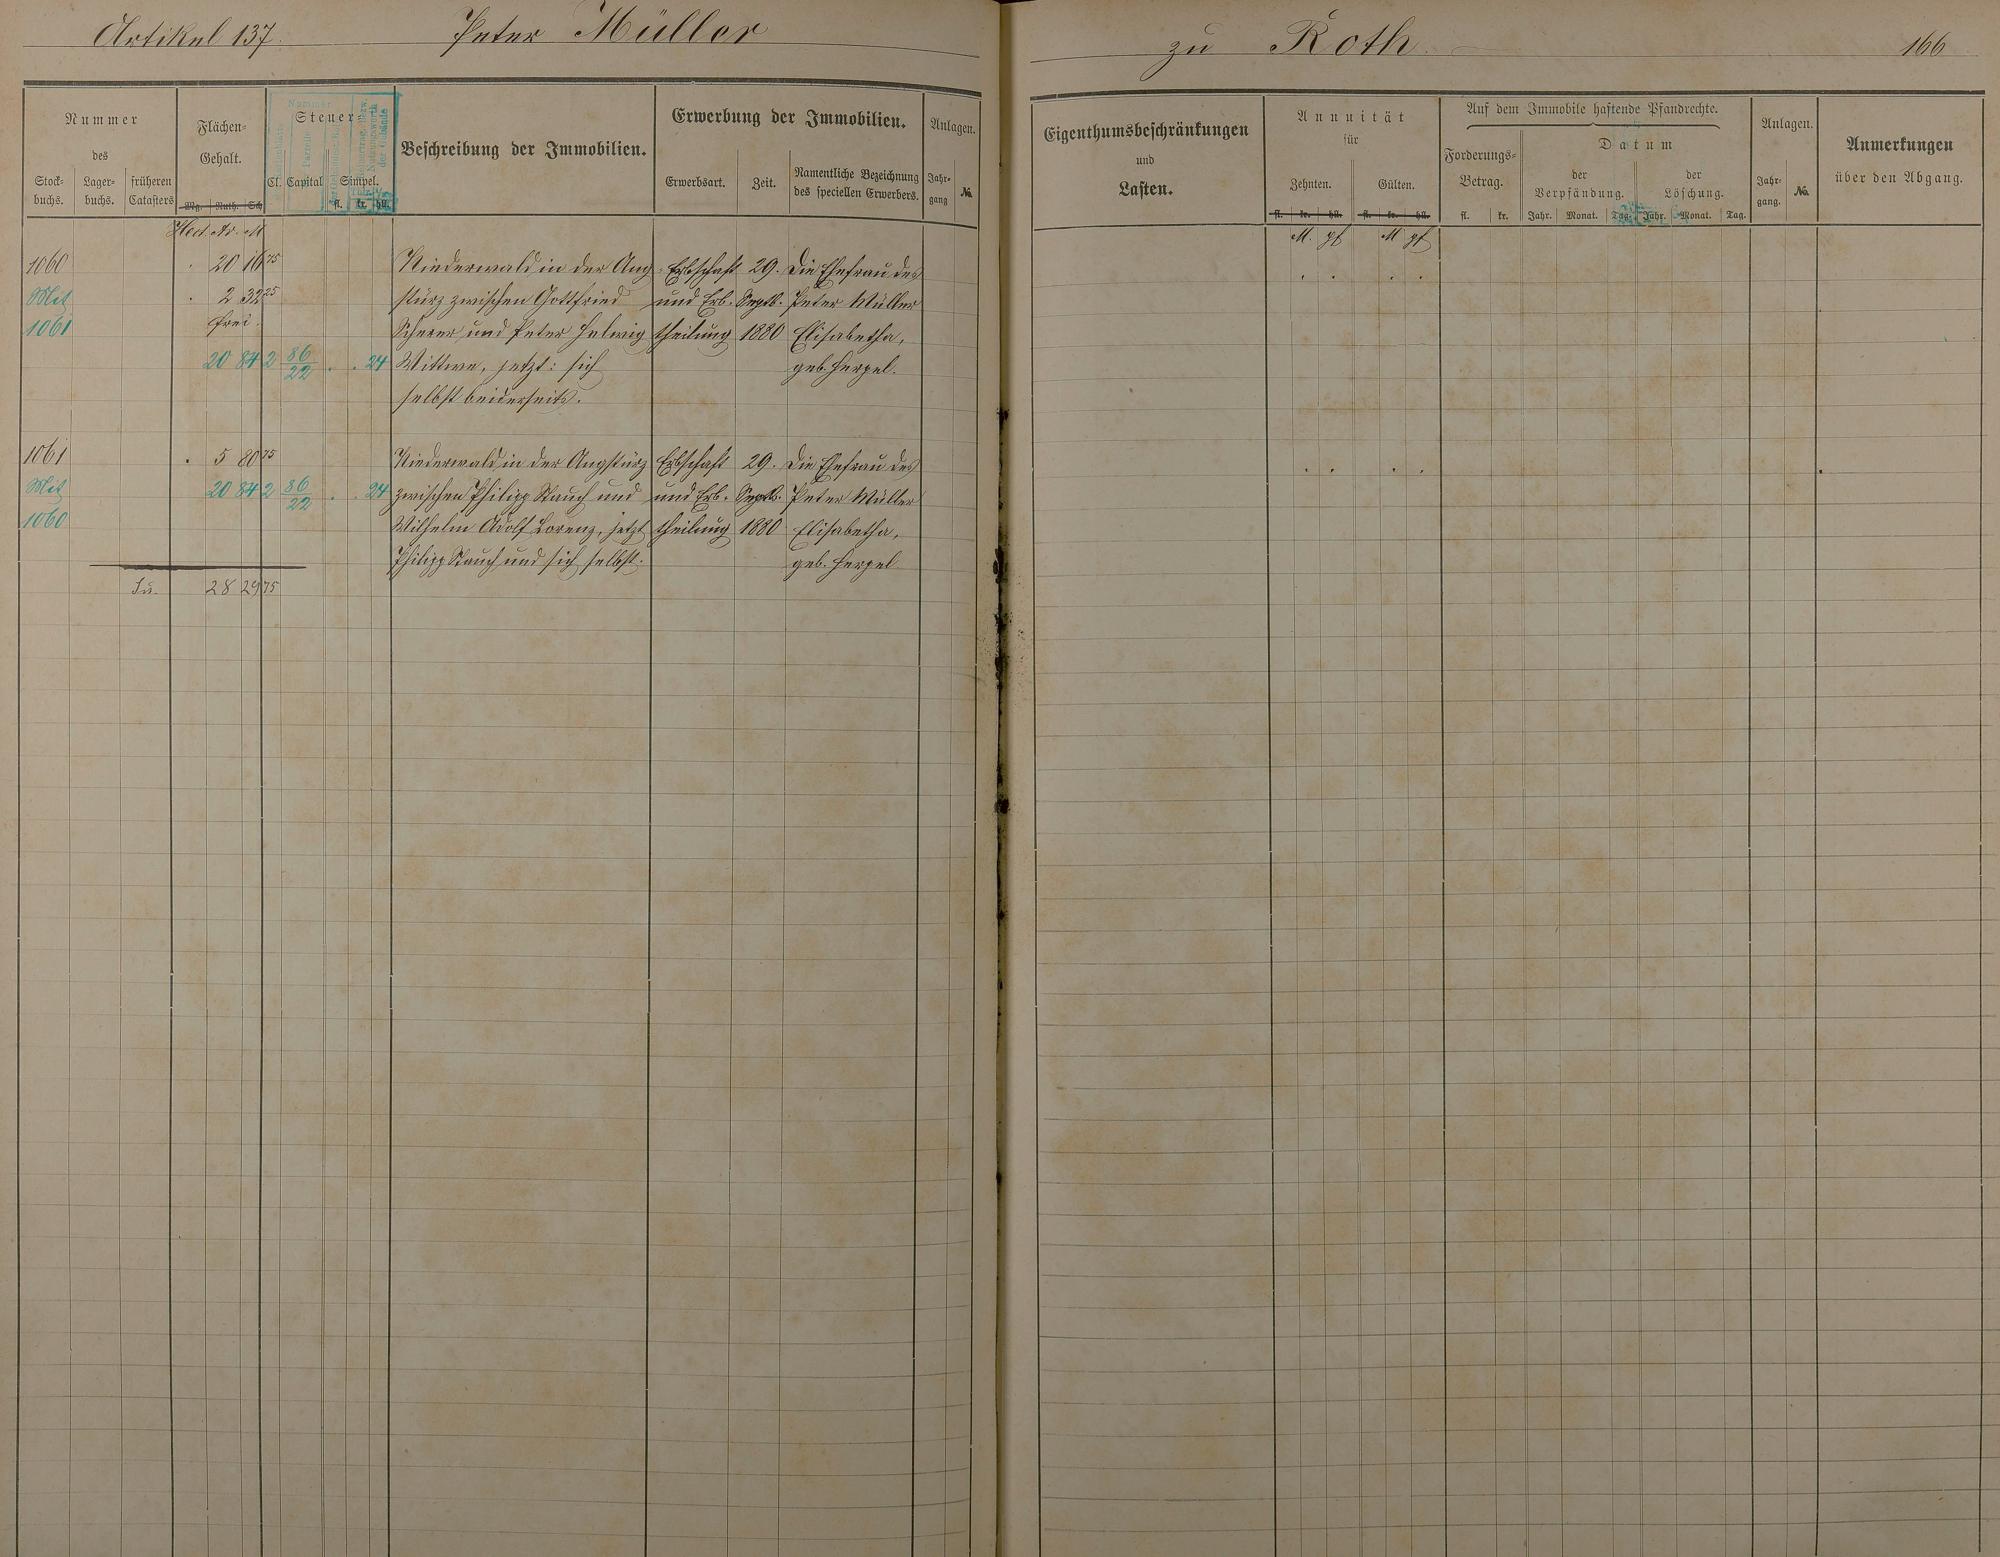 Artikel 137. Peter Müller
zu Roth. 166
Nummer
des
Stock-
buchs.
Lager-
buchs.
früheren
Catasters
Flächen-
Gehalt.
Mg. Ruth. Sch
Steuer
Nummer
Parzelle
der Gebäude
Cl. Capital Simpel.
fl. kr. hll.
Beschreibung der Immobilien.
Erwerbung der Immobilien.
Erwerbsart. Zeit.
Namentliche Bezeichnung
des speciellen Erwerbers.
Anlagen.
Jahr-
gang
No.
Eigenthumsbeschränkungen
und
Lasten.
Annuität
für
Zehnten. Gülten.
fl. kr. hll. fl. kr. hll.
Auf dem Immobile haftende Pfandrechte.
Forderungs-
Betrag.
fl. kr.
Datum
der
Verpfändung.
der
Löschung.
Jahr. Monat. Tag. Jahr. Monat. Tag.
Anlagen.
Jahr-
gang.
No.
Anmerkungen
über den Abgang.
Hect. Ar. M
M. pf M pf
1060 20 16 75 Niederwald in der Ang- Erbschaft 29. Die Ehefrau des
Mit 2 32 25 stürz zwischen Gottfried und Erb- Septb. Peter Müller
1061 frei. Scherer und Peter Helwig theilung 1880 Elisabetha,
20 84 2 86/22 . . 24 Wittwe, jetzt: sich geb. Herpel.
selbst beiderseits.
1061 5 80 75 Niederwald in der Angstürz Erbschaft 29. Die Ehefrau des
Mit 20 84 2 86/22 . . 24 zwischen Philipp Stauch und und Erb- Septb. Peter Müller
1060 Wilhelm Adolf Lorenz, jetzt theilung 1880 Elisabetha,
Philipp Stauch und sich selbst. geb. Herpel
Su. 28 29 75